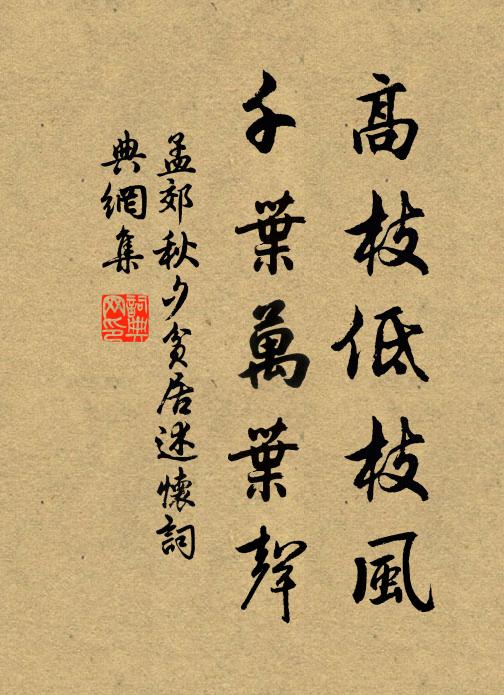 高枝低枝風
千葉萬葉聲
孟郊秋夕貧居述懷詞
典網集
詞典網印